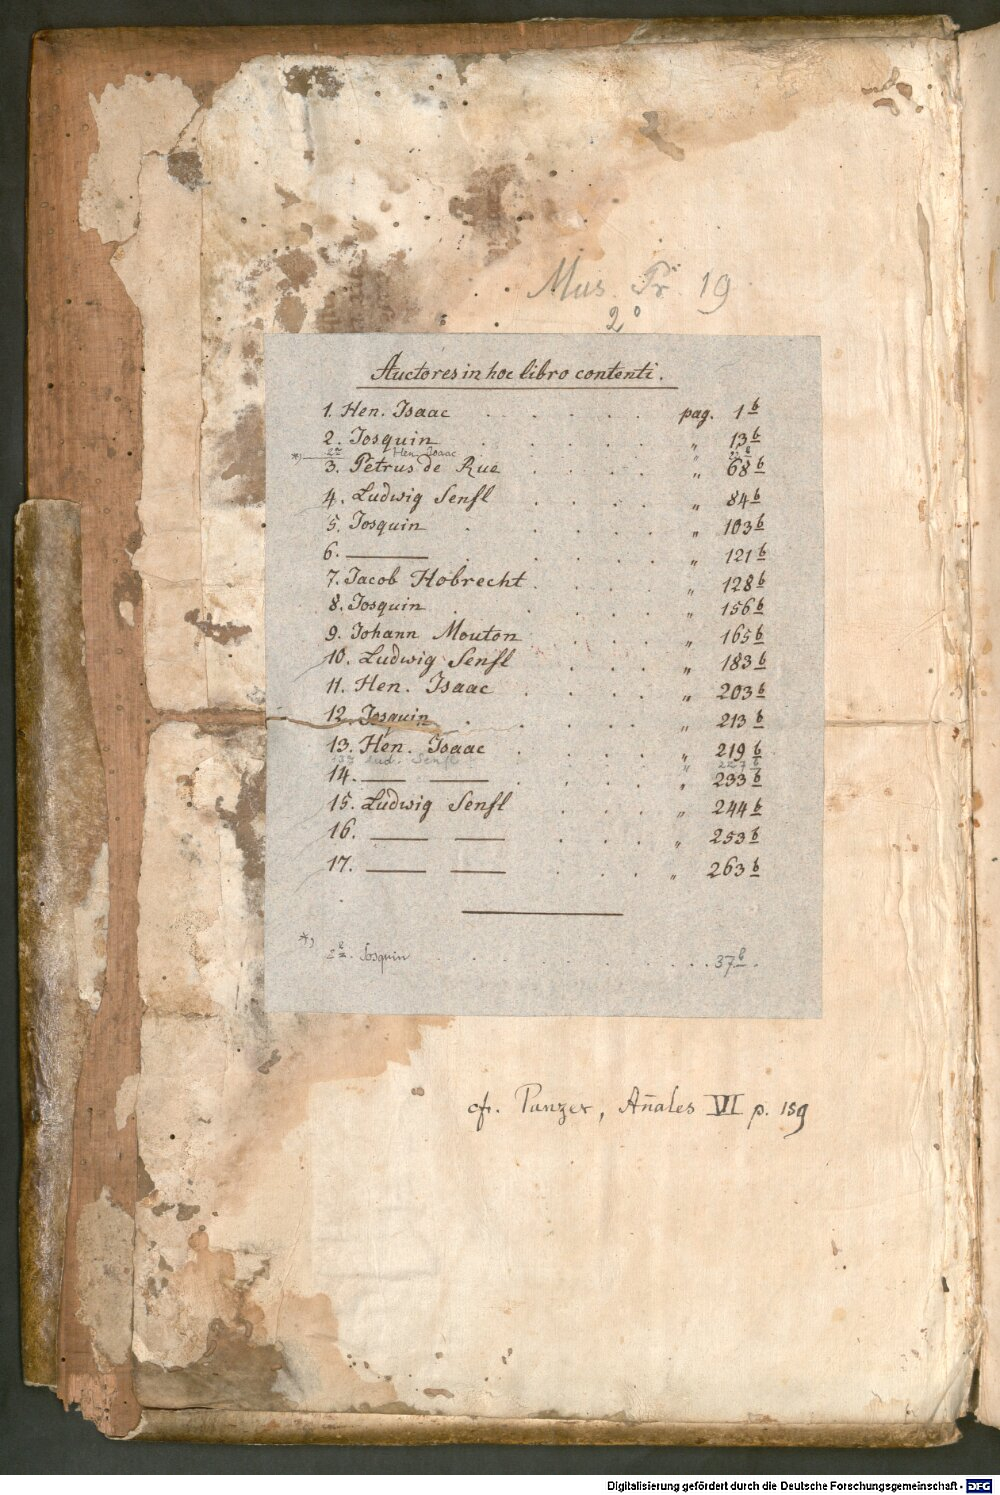 Mus. Pr. 19
2°
Auctores in hoc libro contenti.
1. Hen. Isaac . . . . . . pag. 1 b
2. Josquin . . . . . . " 13 b
*) 2a Hen. Isaac
3. Petrus de Rue . . . . " 68 b
4. Ludwig Senfl . . . . " 84 b
5. Josquin . . . . . " 103 b
6. ——— . . . . . " 121 b
7. Jacob Hobrecht . . . . " 128 b
8. Josquin . . . . . " 156 b
9. Johann Mouton . . . " 165 b
10. Ludwig Senfl . . . " 183 b
11. Hen. Isaac . . . . " 203 b
12. Josquin . . . . . " 213 b
13. Hen. Isaac . . . . " 219 b
13a Lud. Senfl " 227 b
14. —— —— . . . . " 233 b
15. Ludwig Senfl . . . " 244 b
16. —— —— . . . . " 253 b
17. —— —— . . . . " 263 b
*) 2a. Josquin . . . . . . . . . 37 b.
cfr. Panzer,Añales VI p. 159
Digitalisierung gefördert durch die Deutsche Forschungsgemeinschaft - DFG